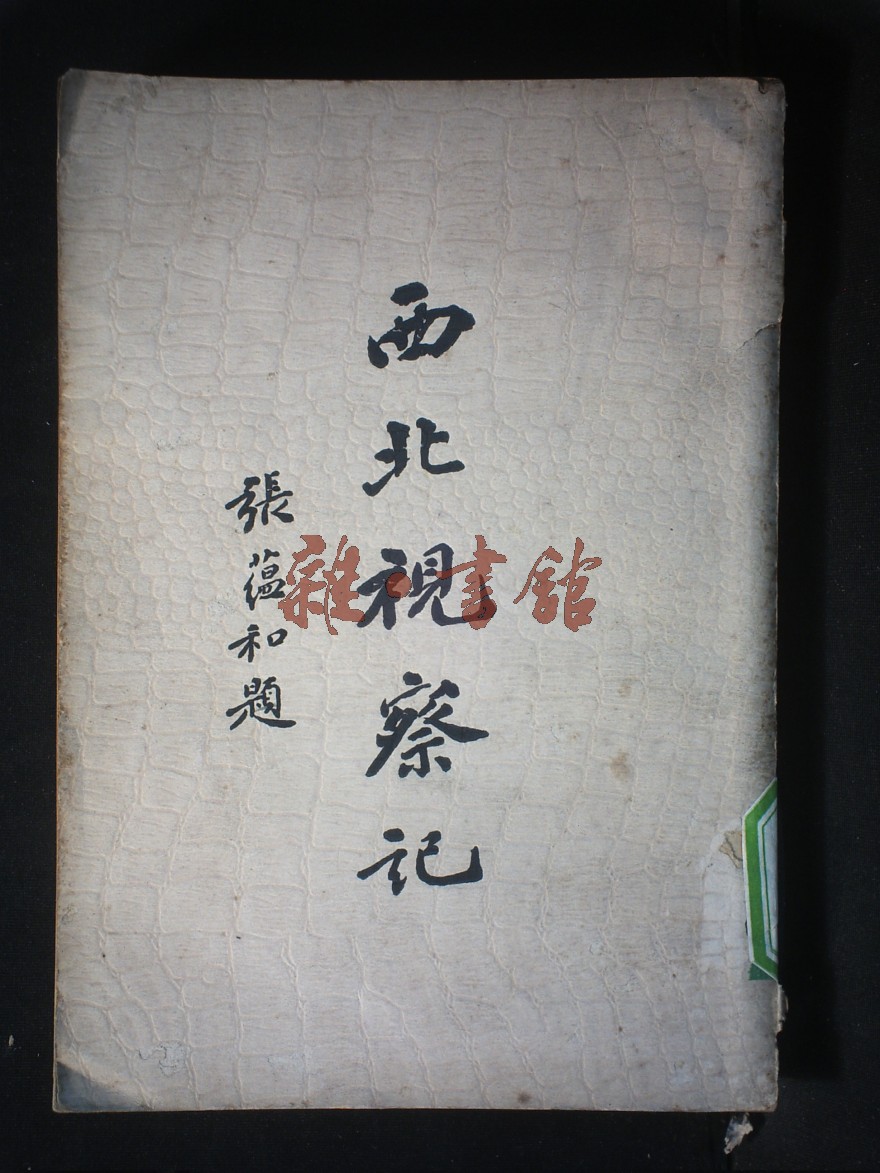 西北視察記
張蘊和題
雜·書館